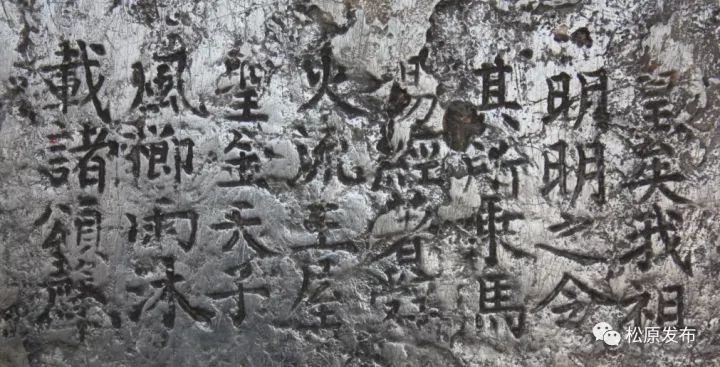 皇矣我祖
明明之令
其所乘馬
易經著
火流王屋
聖金天子
風櫛雨沐
載諸頌聲
松原发布